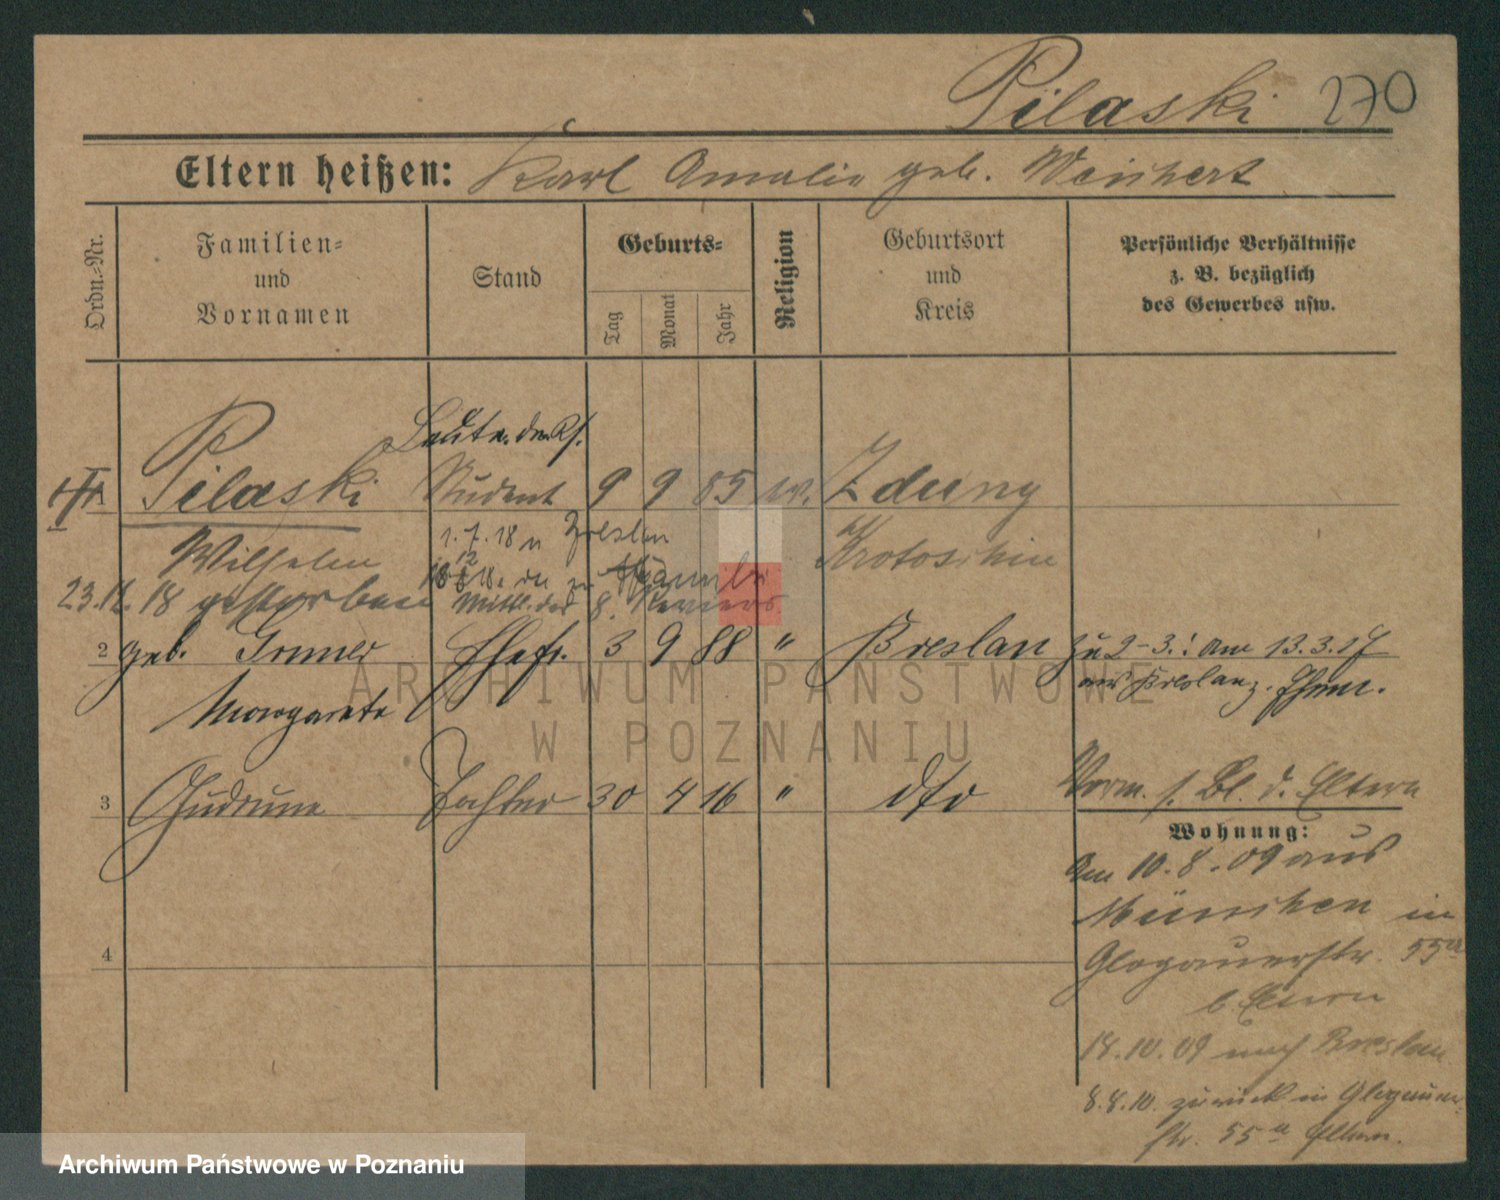 Pilaski 270
Eltern heißen: Karl Amalie geb. Weichert
Ordn.=Nr.
Familien=
und
Vornamen
Stand
Geburts=
Tag
Monat
Jahr
Religion
Geburtsort
und
Kreis
Persönliche Verhältnisse
z. B. bezüglich
des Gewerbes usw.
Leutn. der Rs.
1 Pilaski Student 9 9 85 ev. Zduny
Wilhelm 1.7.18 Breslau Krotoschin
23.12.18 gestorben
8. Reviers
2 geb. Ehefr. 3 9 88 " Breslau zu 2-3: Am 13.3.17
Margarete aus Breslau z. Ehem.
3 Gudrune Tochter 30 4 16 " dto Vorm. s. Bl. d. Eltern
Wohnung:
Am 10.8.09 aus
München in
4 Glogauerstr. 55a
b. Eltern
18.10.09 nach Breslau
8.8.10. zurück in Glogauer
str. 55a Eltern.
ARCHIWUM PAŃSTWOWE
W POZNANIU
Archiwum Państwowe w Poznaniu